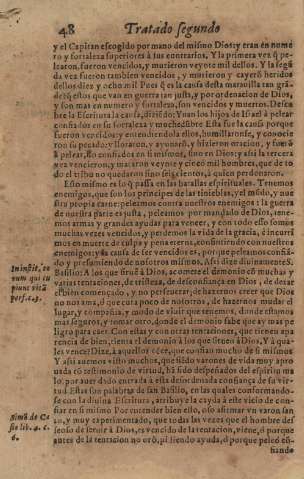 48 Tratado segundo
y el Capitan escogido por mano del mismo Dios: y eran en nume
ro y fortaleza superiores à sus contrarios, Y la primera vez q̃ pe
learon, fueron vencidos, y murieron veynte mil dellos. Y la segũ
da vez fueron tambien vencidos, y murieron y cayerõ heridos
dellos diez y ocho mil Pues q̃ es la causa desta marauilla tan grã
de, q̃ estos que van en guerra tan justa, y por ordenacion de Dios,
y son mas en numero y fortaleza, son vencidos y muertos. Descu
bre la Escritura la causa, diziẽdo: Yuan los hijos de Israel à pelear
confiados en su fortaleza y muchedũbre Esta fue la causa porque
fueron vencidos: y entendiendola ellos, humillaronse, y conocie
ron su pecado: y lloraron, y ayunarõ, y hizieron oracion, y fuerõ
à pelear, no confiados en si mismos, sino en Dios: y assi la tercera
vez vencieron, y mataron veynte y cinco mil hombres, que de to
do el tribu no quedaron sino seiscientos, à quien perdonaron.
Esto mismo es lo q̃ passa en las batallas espirituales. Tenemos
enemigos, que son los principes de las tinieblas, y el mũdo, y nue
stra propia carne: peleamos contra nuestros enemigos: la guerra
de nuestra parte es justa, peleamos por mandado de Dios, tene-
mos armas y grandes ayudas para vencer, y con todo esso somos
muchas vezes vencidos, y perdemos la vida de la gracia, è incurri
mos en muerte de culpa y pena eterna, consintiendo con nuestros
enemigos: y la causa de ser vencidos es, porque peleamos confiã-
do y presumiendo de nosotros mismos. Assi dize diuinamente S.
Basilio: A los que siruẽ à Dios, acomete el demonio cõ muchas y
varias tentaciones, de tristeza, de desconfiança en Dios, y de dexar
el bien començado, y no perseuerar, de hazernos creer que Dios
no nos ama, ò que cura poco de nosotros, de hazernos mudar el
lugar, y compañia, y modo de viuir que tenemos, donde estamos
mas seguros, y tomar otro, donde el demonio sabe que ay mas pe
ligro para caer. Con estas y con otras tentaciones, que tienen apa
rencia de bien, tienta el demonio à los que siruen à Dios, Y à quà
les vence? Dize, à aquellos õ cree, que confian mucho de si mismos
Y assi auemos visto muchos, que siẽdo varones de vida muy apro
uada cõ testimonio de virtud, hã sido despeñados del espiritu ma
lo, por auer dado entrada à esta desordenada confiança de su vir
tud Estas son palabras de san Basilio, en las quales conformando-
se con la diuina Escritura, atribuye la cayda à este vicio de confi-
ar en si mismo Por entender bien ello, oso afirmar vn varon san
to, y muy experimentado, que todas las vezes que el hombre def
seoso de seruir à Dios, es vencido de la tentacion, viene, ò porque
antes de la tentacion no orò, pidiendo ayuda, ò porque peleò cõ
fiando